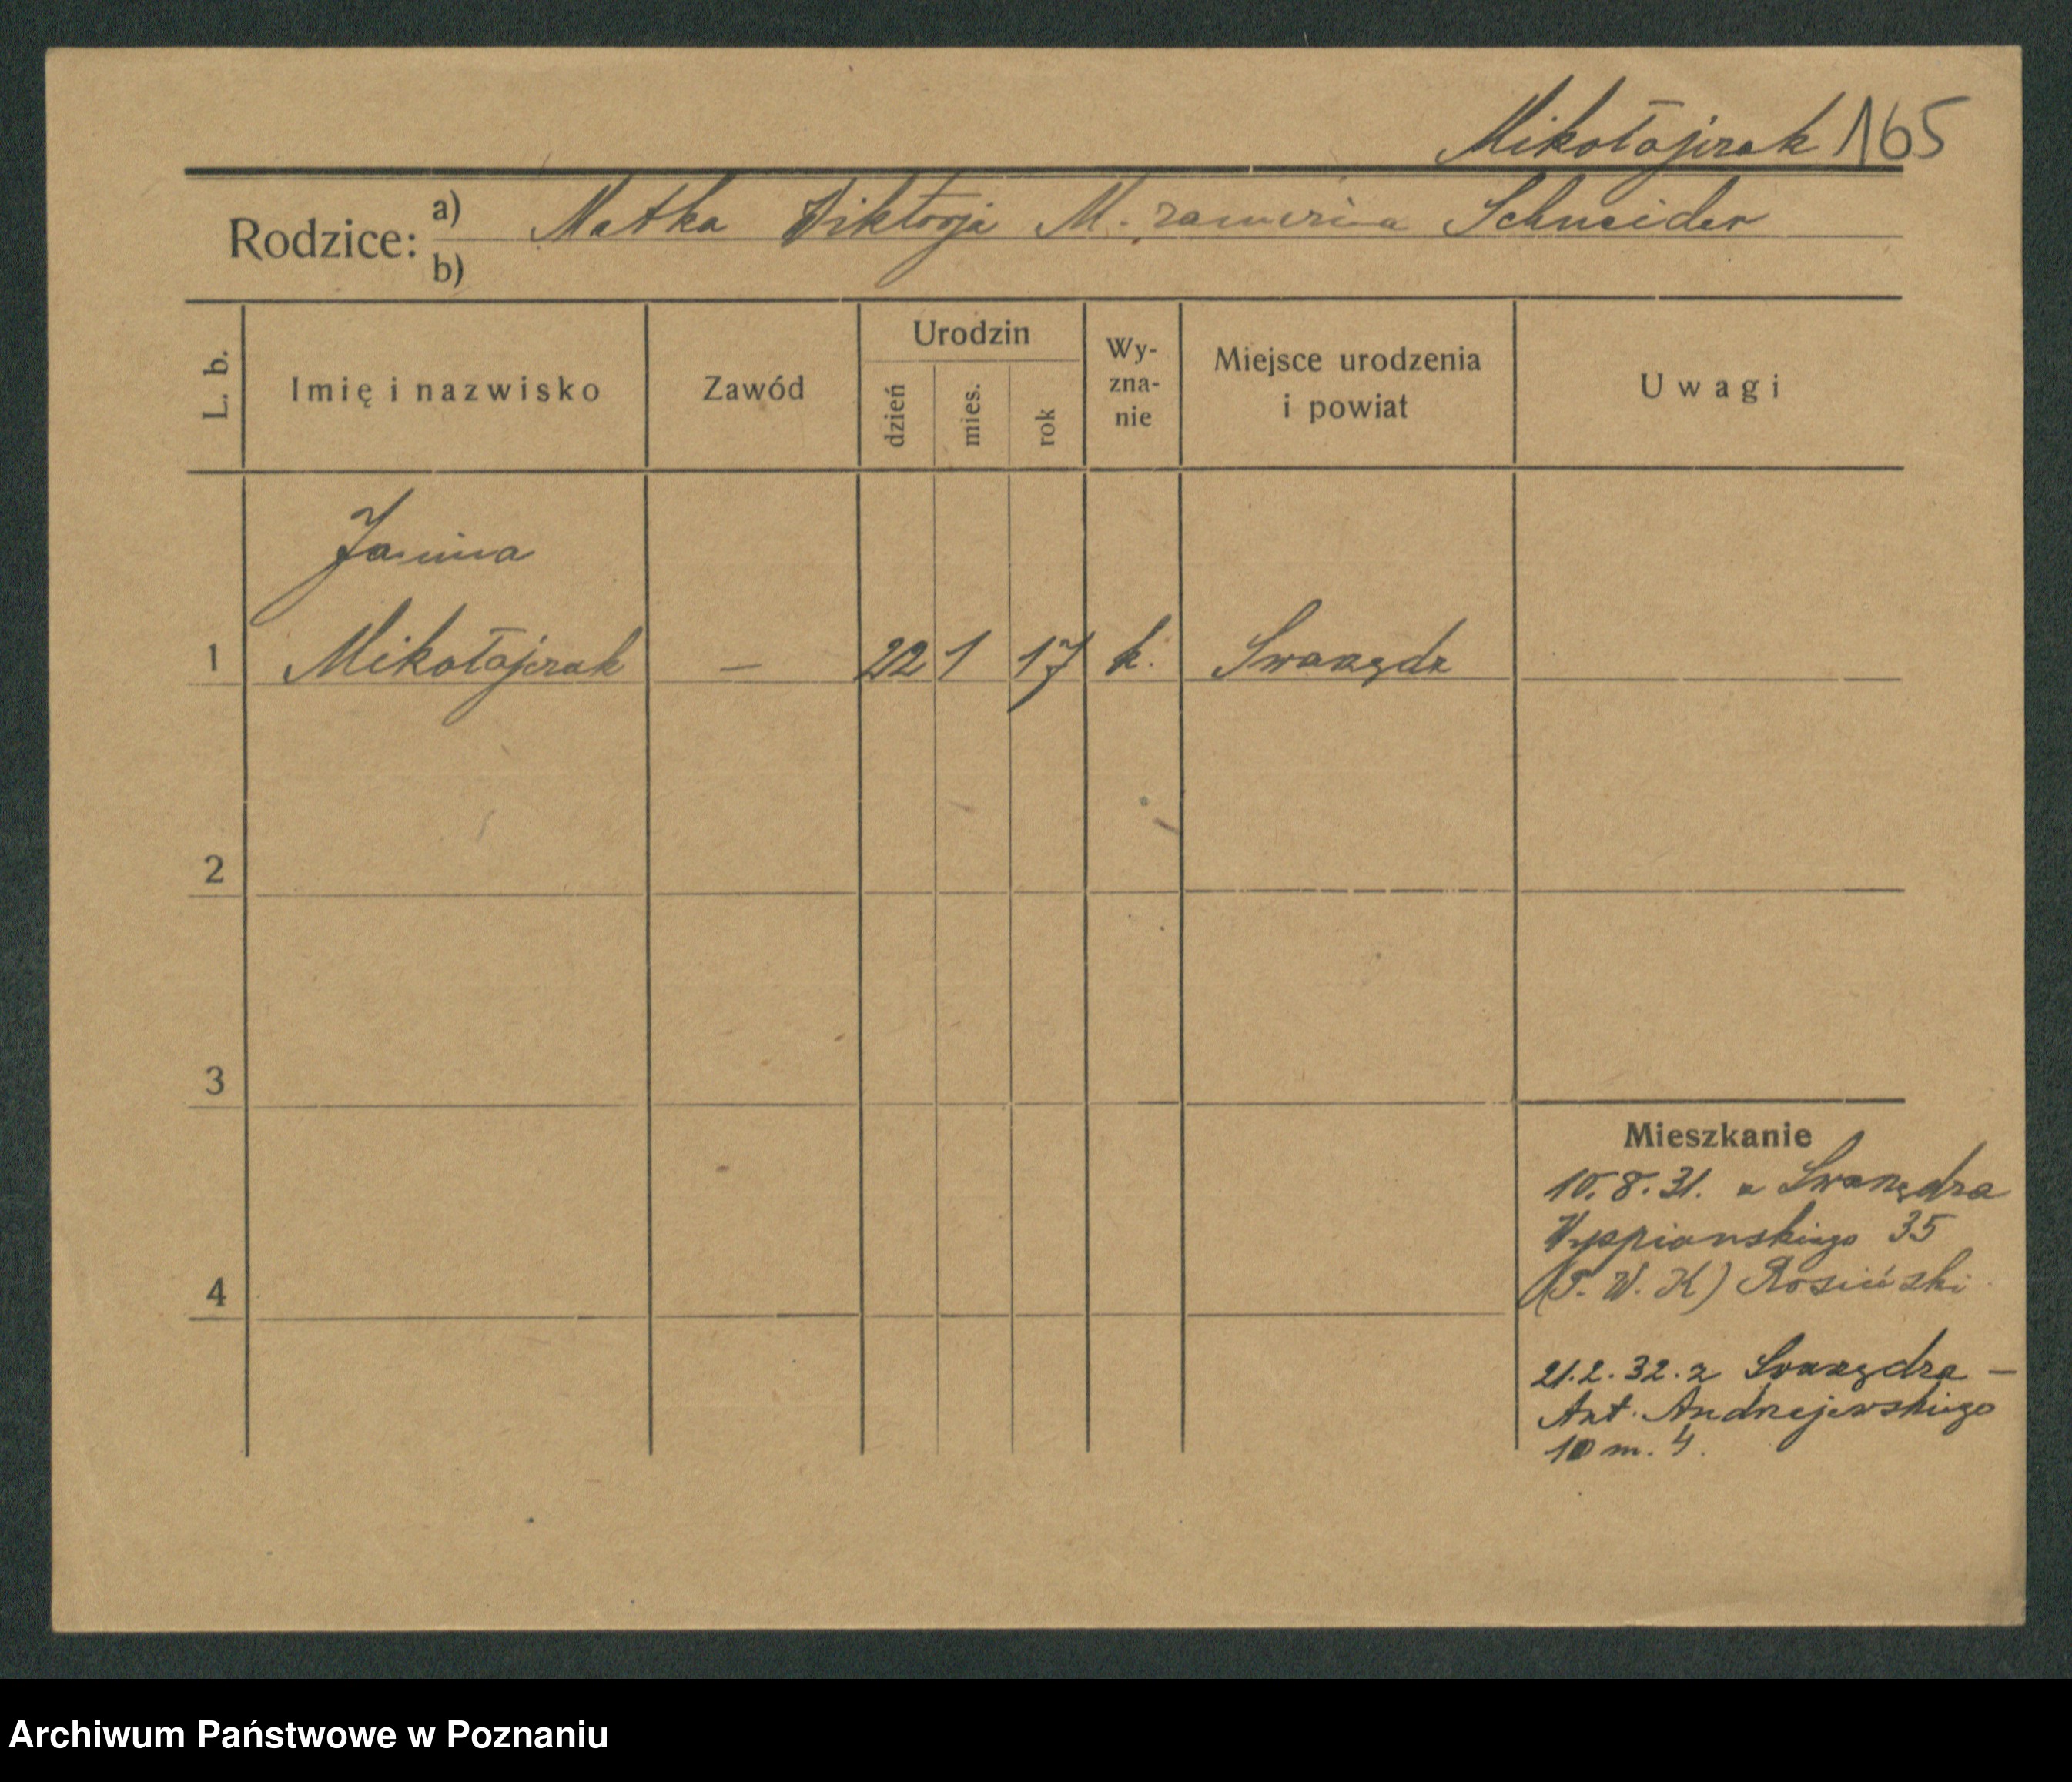 Mikołajczak 165
Rodzice: a) Matka Wiktorja M. Schneider
b)
L. b.
Imię i nazwisko
Zawód
Urodzin
dzień
mies.
rok
Wy-
zna-
nie
Miejsce urodzenia
i powiat
Uwagi
Janina
1 Mikołajczak – 22 1 17 k. Swarzędz
2
3
4
Mieszkanie
10.8.31. z Swarzędza
Wyspianskiego 35
(P. W. K) Rosiński
21.2.32. z Swarzędza –
Ant. Andrzejewskiego
10 m. 4.
Archiwum Państwowe w Poznaniu